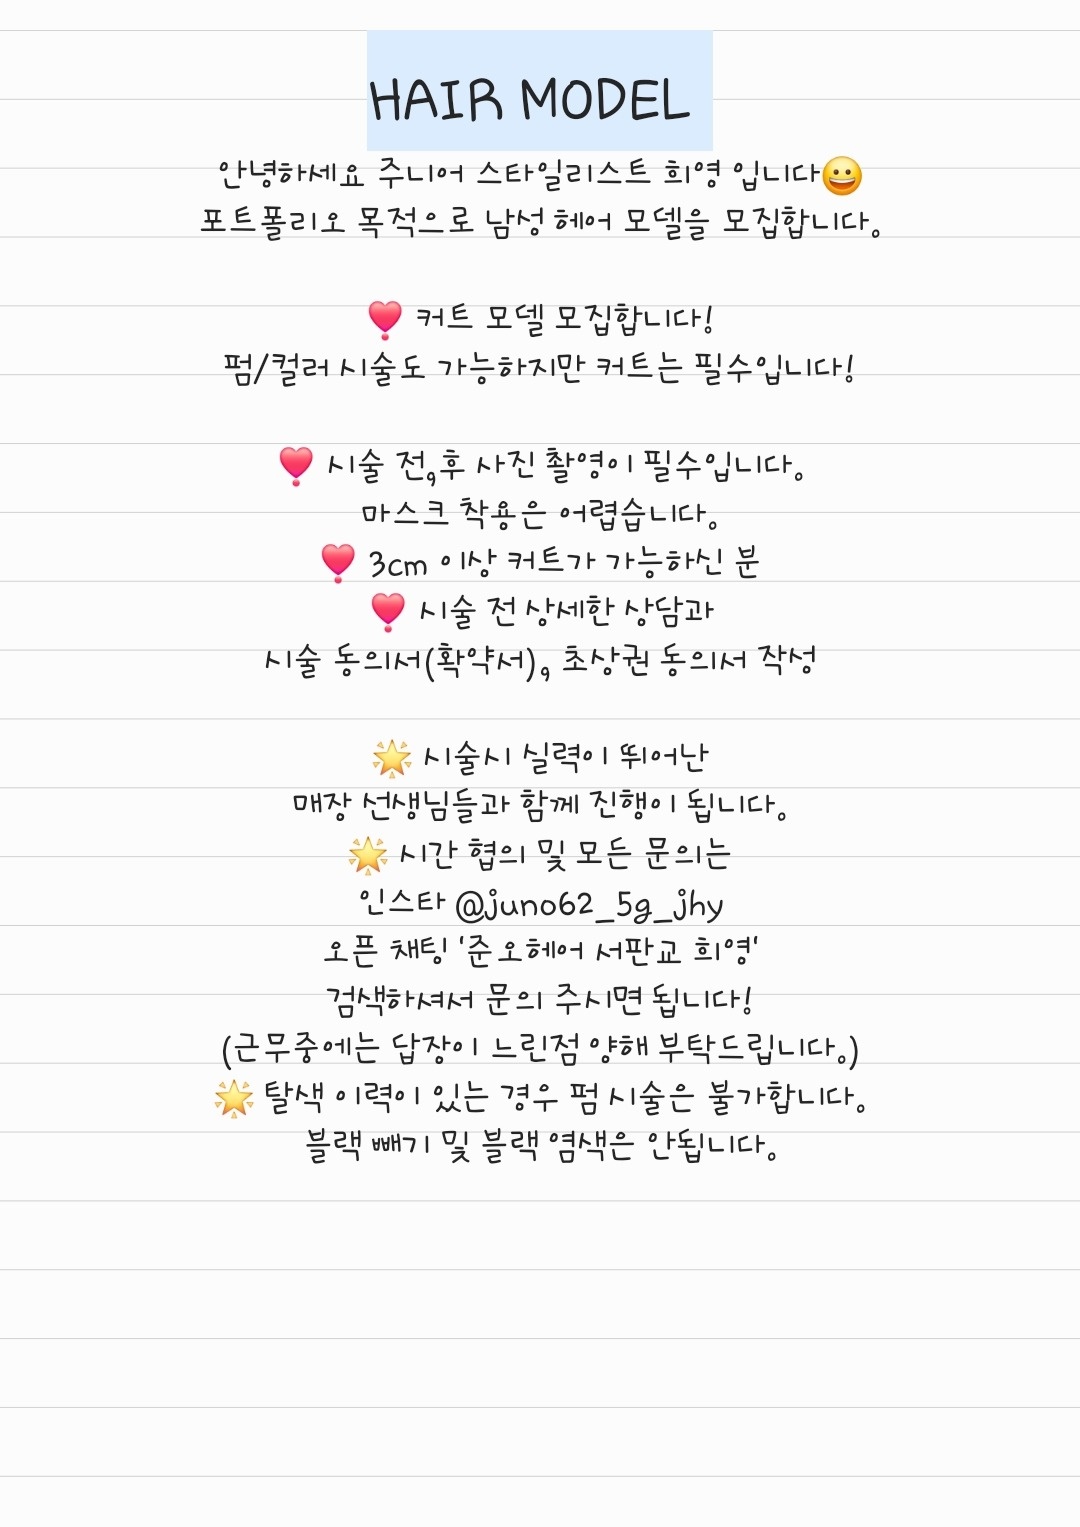 HAIR MODEL
안녕하세요 주니어 스타일리스트 희영 입니다😀
포트폴리오 목적으로 남성 헤어 모델을 모집합니다.
❣️ 커트 모델 모집합니다!
펌/컬러 시술도 가능하지만 커트는 필수입니다!
❣️ 시술 전,후 사진 촬영이 필수입니다.
마스크 착용은 어렵습니다.
❣️ 3cm 이상 커트가 가능하신 분
❣️ 시술 전 상세한 상담과
시술 동의서(확약서), 초상권 동의서 작성
🌟 시술시 실력이 뛰어난
매장 선생님들과 함께 진행이 됩니다.
🌟 시간 협의 및 모든 문의는
인스타 @juno62_5g_jhy
오픈 채팅 '준오헤어 서판교 희영'
검색하셔서 문의 주시면 됩니다!
(근무중에는 답장이 느린점 양해 부탁드립니다.)
🌟 탈색 이력이 있는 경우 펌 시술은 불가합니다.
블랙 빼기 및 블랙 염색은 안됩니다.